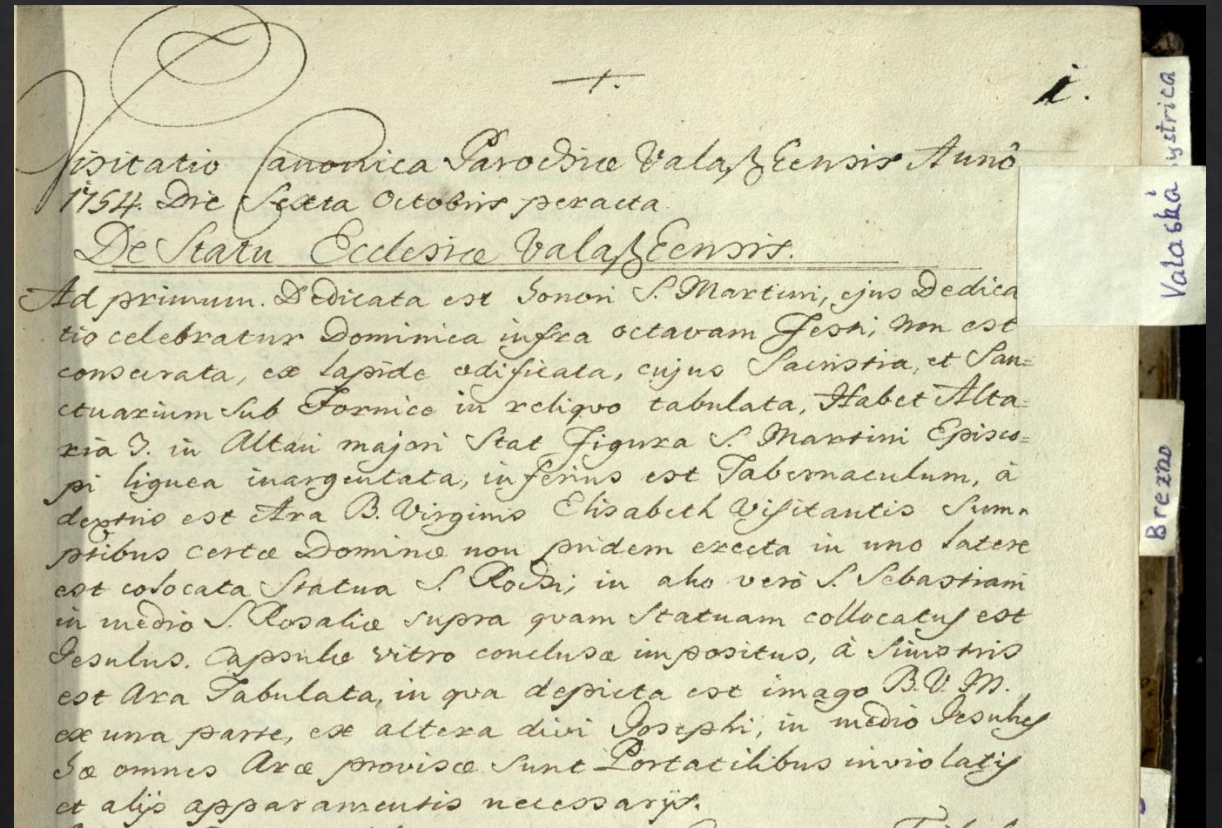 +.
i.
Visitatio Canonica Parochiæ Valaßkensis Annô
1754. Die Sexta Octobris peracta.
De Statu Ecclesiæ Valaßkensis.
Ad primum. Dedicata est honori S. Martini, ejus Dedica
tio celebratur Dominica infra octavam Festi; non est
consecrata, ex lapide ædificata, cujus Sacristia, et San=
ctuarium sub Fornice in reliqvo tabulata, Habet Alta=
ria 3. in Altari majori Stat Figura S. Martini Episco=
pi lignea inargentata, inferius est Tabernaculum, à
dextris est Ara B. Virginis Elisabeth Visitantis Sum=
ptibus certæ Dominæ non pridem erecta in uno latere
est colocata Statua S. Rochi; in alio verò S. Sebastiani
in medio S. Rosaliæ supra qvam Statuam collocatus est
Jesulus. Capsulæ vitro conclusæ impositus, à Sinistris
est Ara Tabulata, in qva depicta est imago B.V.M.
ex una parte, ex altera divi Josephi, in medio Jesulus
hæ omnes Aræ provisæ sunt Portatilibus inviolatis
et alijs apparamentis necessarijs.
Valaská
Bystrica
Brezno